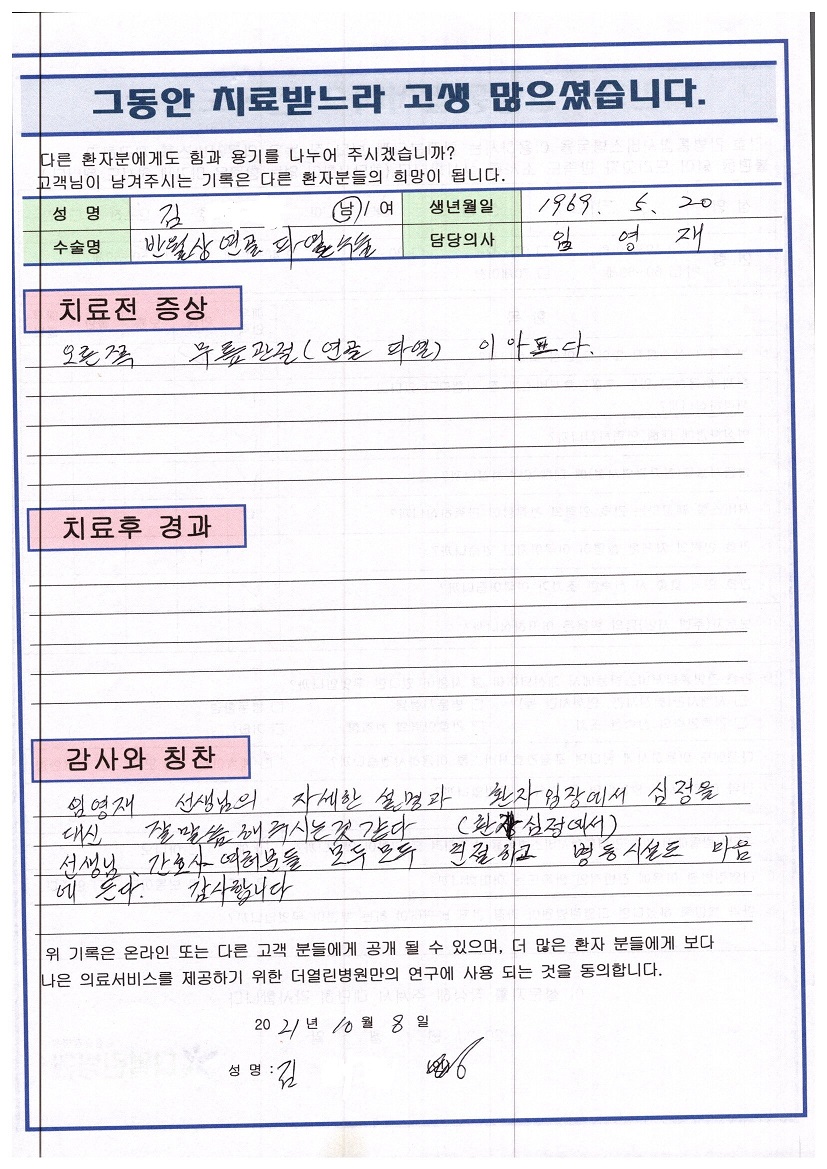 그동안 치료받느라 고생 많으셨습니다.
다른 환자분에게도 힘과 용기를 나누어 주시겠습니까?
고객님이 남겨주시는 기록은 다른 환자분들의 희망이 됩니다.
성 명 김 남 / 여 생년월일 1969. 5. 20
수술명 반월상 연골 파열 수술 담당의사 임 영 재
치료전 증상
오른쪽 무릎관절(연골 파열) 이 아프다.
치료후 경과
감사와 칭찬
임영재 선생님의 자세한 설명과 환자입장에서 심정을
대신 잘말씀해주시는것 같다 (환자심정에서)
선생님, 간호사 여러분들 모두모두 친절하고 병동시설도 마음
에 든다. 감사합니다
위 기록은 온라인 또는 다른 고객 분들에게 공개 될 수 있으며, 더 많은 환자 분들에게 보다
나은 의료서비스를 제공하기 위한 더열린병원만의 연구에 사용 되는 것을 동의합니다.
2021년 10월 8일
성 명 : 김